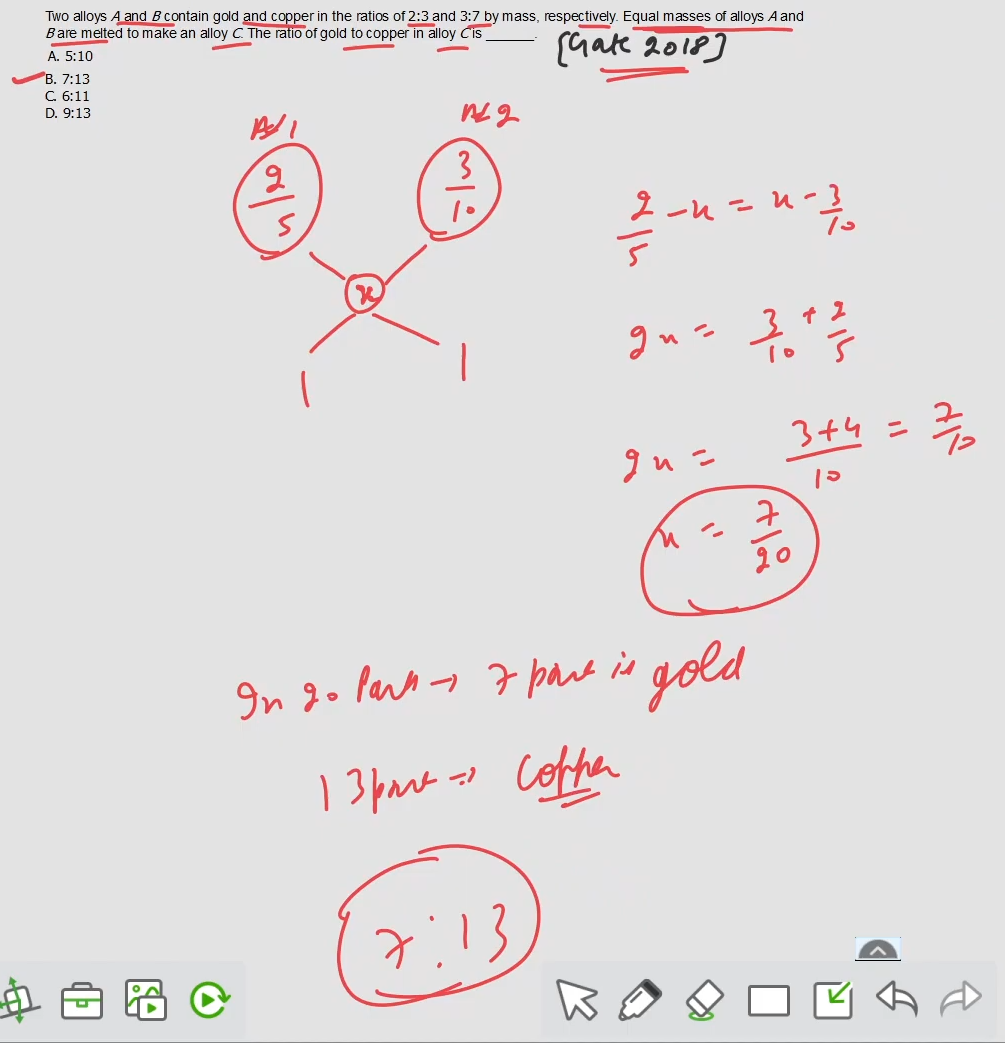 Two alloys A and B contain gold and copper in the ratios of 2:3 and 3:7 by mass, respectively. Equal masses of alloys A and
B are melted to make an alloy C. The ratio of gold to copper in alloy C is ______.
[Gate 2018]
A. 5:10
B. 7:13
C. 6:11
D. 9:13
2/5
3/10
x
1
1
2/5 - x = x - 3/10
2x = 3/10 + 2/5
2x = 3+4/10 = 7/10
x = 7/20
In 20 Part → 7 part is gold
13 part ⇒ Copper
7:13